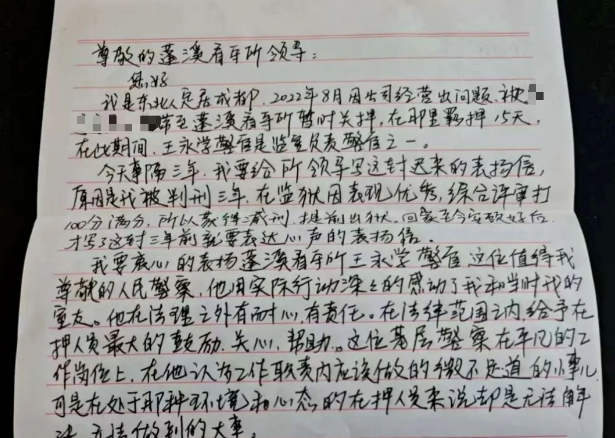 尊敬的蓬溪看守所领导：
您好
我是东北人定居成都，2022年8月因公司经营出问题，被
带至蓬溪看守所暂时关押，在那里羁押15天，
在此期间，王永学警官是监室负责警官之一。
今天事隔三年，我要给所领导写这封迟来的表扬信，
原因是我被判刑三年，在监狱因表现优秀，综合评审打
100分满分，所以蒙获减刑，提前出狱。回家至今安顿好后
才写了这封三年前就要表达心声的表扬信。
我要衷心的表扬蓬溪看守所王永学警官这位值得我
尊敬的人民警察，他用实际行动深深的感动了我和当时我的
室友。他在法理之外有耐心，有责任。在法律范围之内给予在
押人员最大的鼓励、关心，帮助。这位基层警察在平凡的工
作岗位上，在他认为工作职责内应该做的微不足道的小事儿
可是在处于那种环境和心态的在押人员来说却是无法用
无法做到的大事。